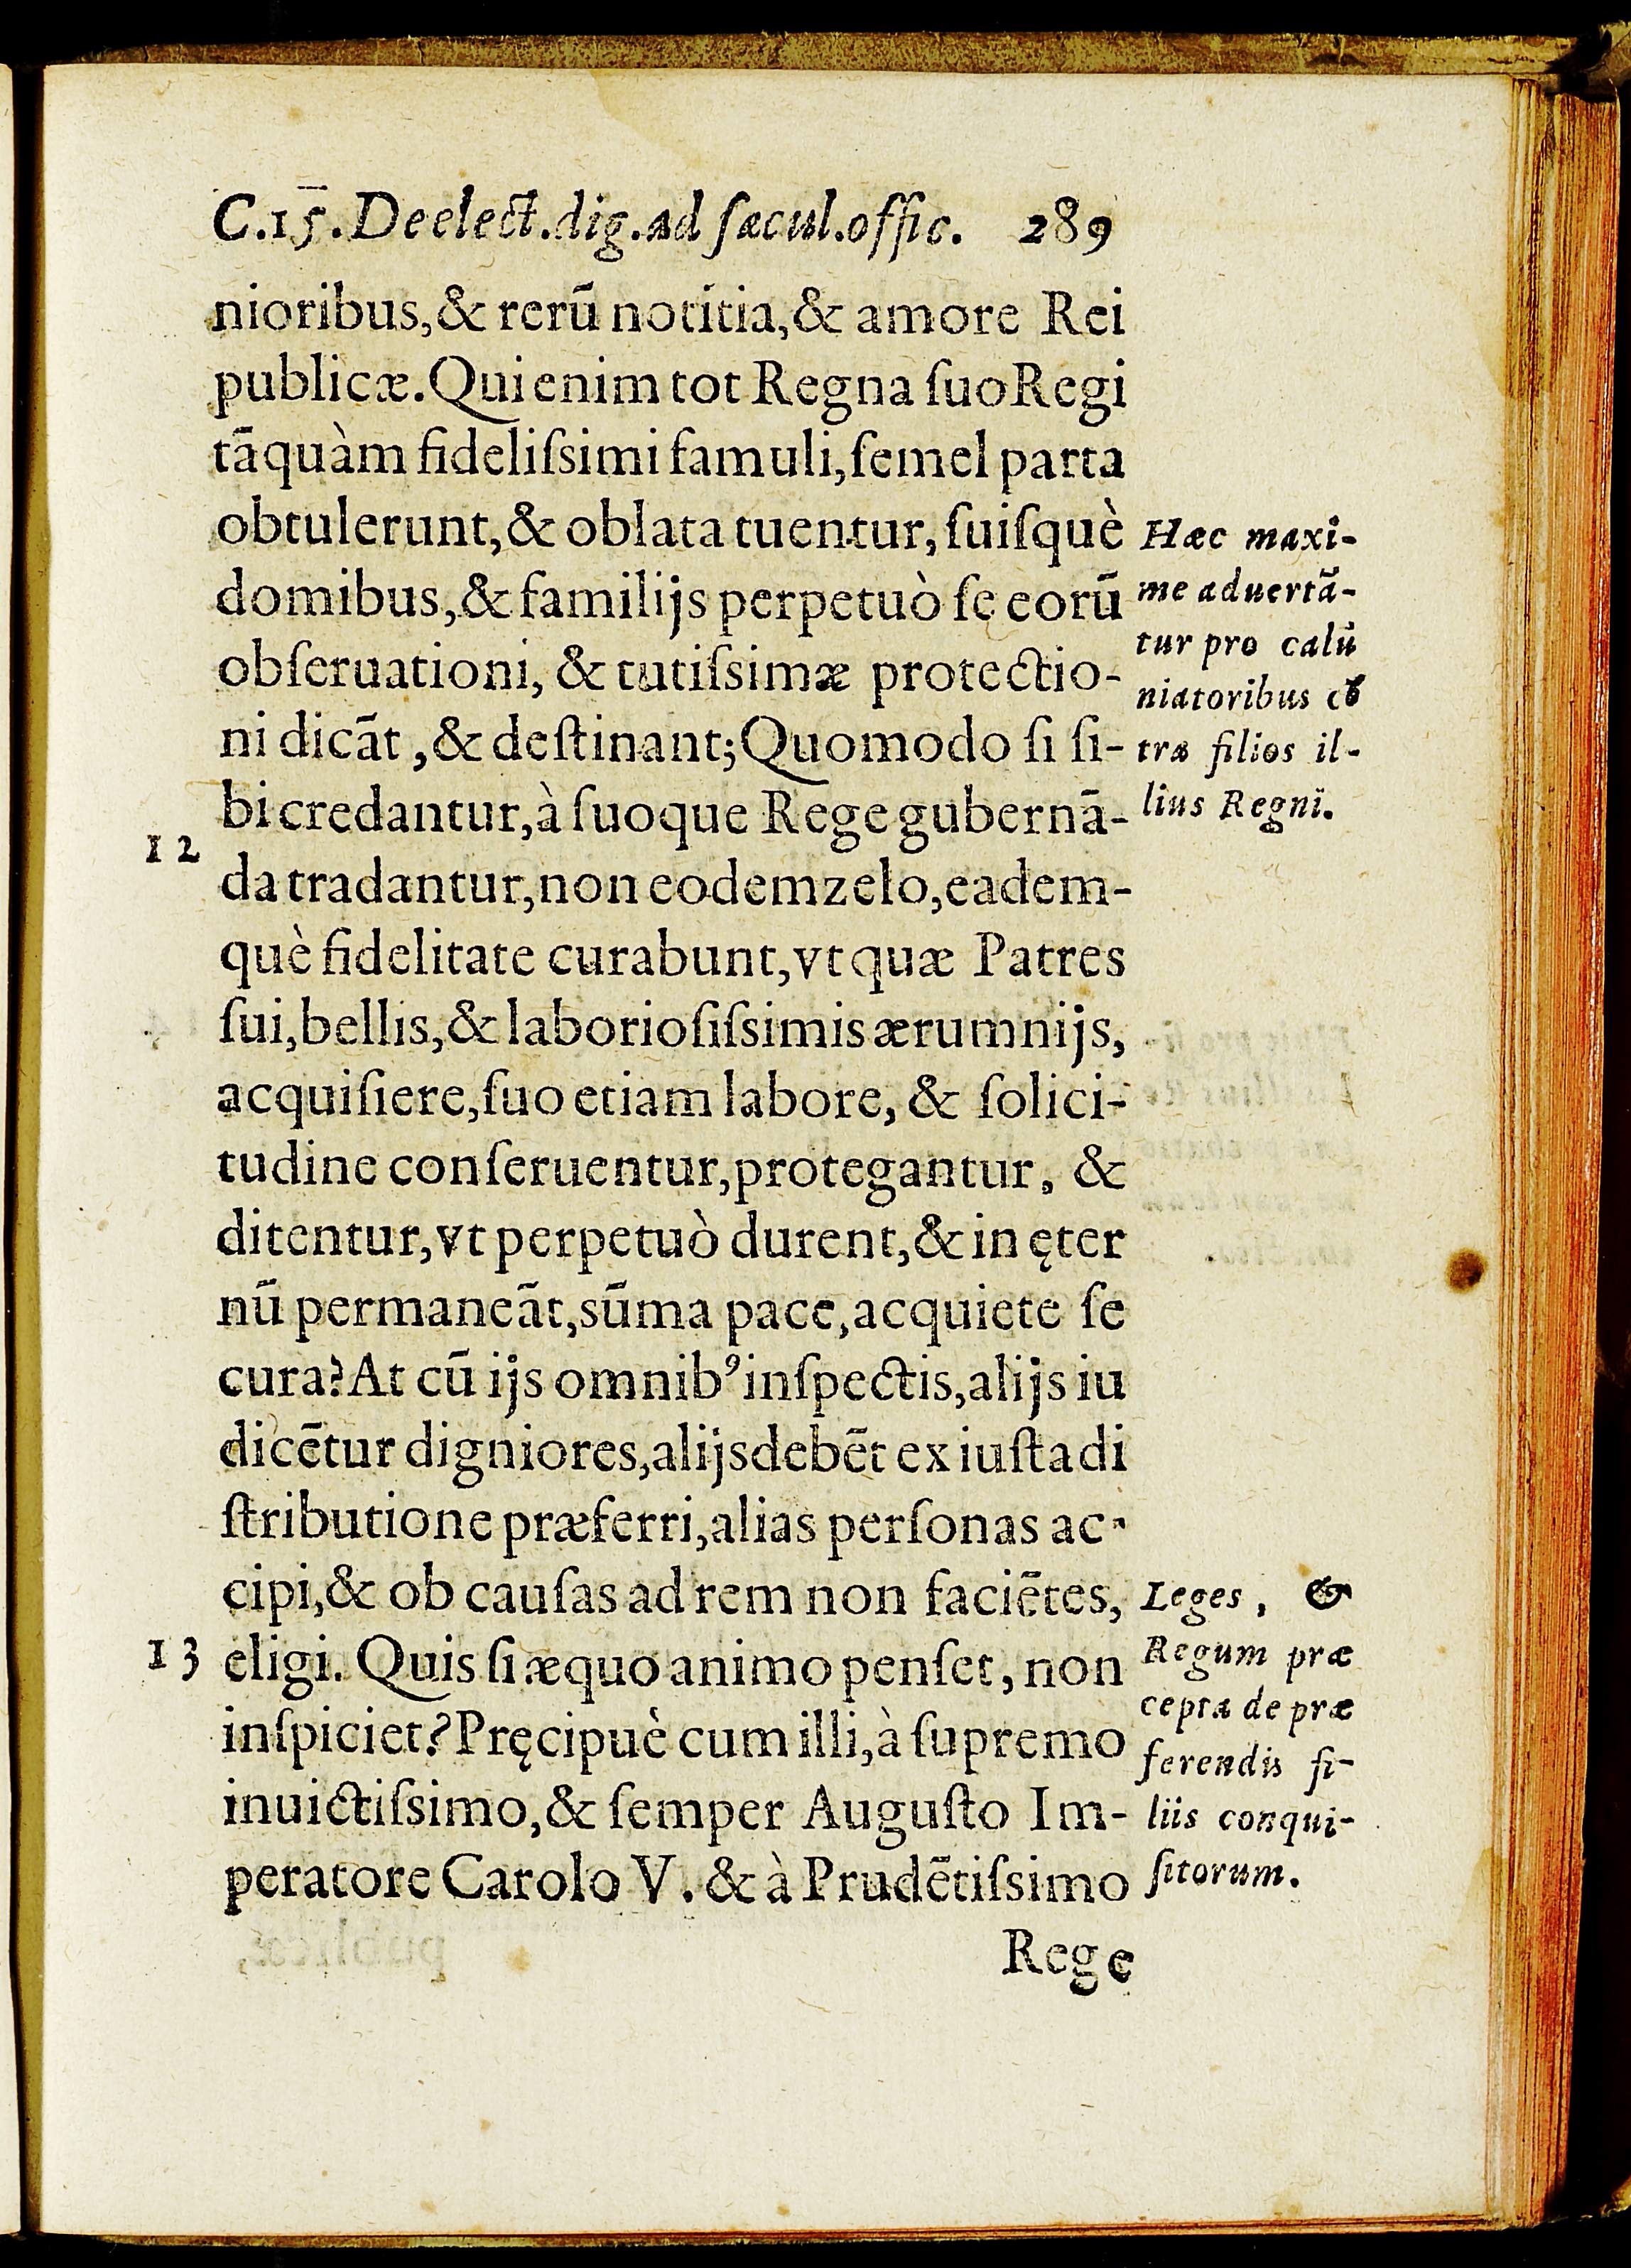 C.15.De elect.dig.ad ſæcul.offic. 289
nioribus,& rerū notitia,& amore Rei
publicæ.Qui enim tot Regna ſuo Regi
tāquàm fideliſsimi famuli,ſemel parta
obtulerunt,& oblata tuentur, ſuiſquè
domibus,& familijs perpetuò ſe eorū
obſeruationi, & tutiſsimæ protectio-
ni dicāt ,& deſtinant;Quomodo ſi ſi-
bi credantur,à ſuoque Rege gubernā-
12
da tradantur,non eodem zelo,eadem-
què fidelitate curabunt,vt quæ Patres
ſui,bellis,& laborioſiſsimis ærumnijs,
acquiſiere,ſuo etiam labore, & ſolici-
tudine conſeruentur,protegantur, &
ditentur,vt perpetuò durent,& in ęter
nū permaneāt,sūma pace,ac quiete ſe
cura?At cū ijs omnibꝰ inſpectis,alijs iu
dicētur digniores,alijs debēt ex iuſta di
ſtributione præferri,alias perſonas ac-
cipi,& ob cauſas ad rem non faciētes,
13 eligi. Quis ſi æquo animo penſet, non
inſpiciet? Pręcipuè cum illi,à ſupremo
inuictiſsimo,& ſemper Auguſto Im-
peratore Carolo V. & à Prudētiſsimo
Rege
Hæc maxi-
me aduertā-
tur pro calū
niatoribus cō
tra filios il-
lius Regni.
Leges , &
Regum præ
cepta de præ
ferendis fi-
liis conqui-
ſitorum.